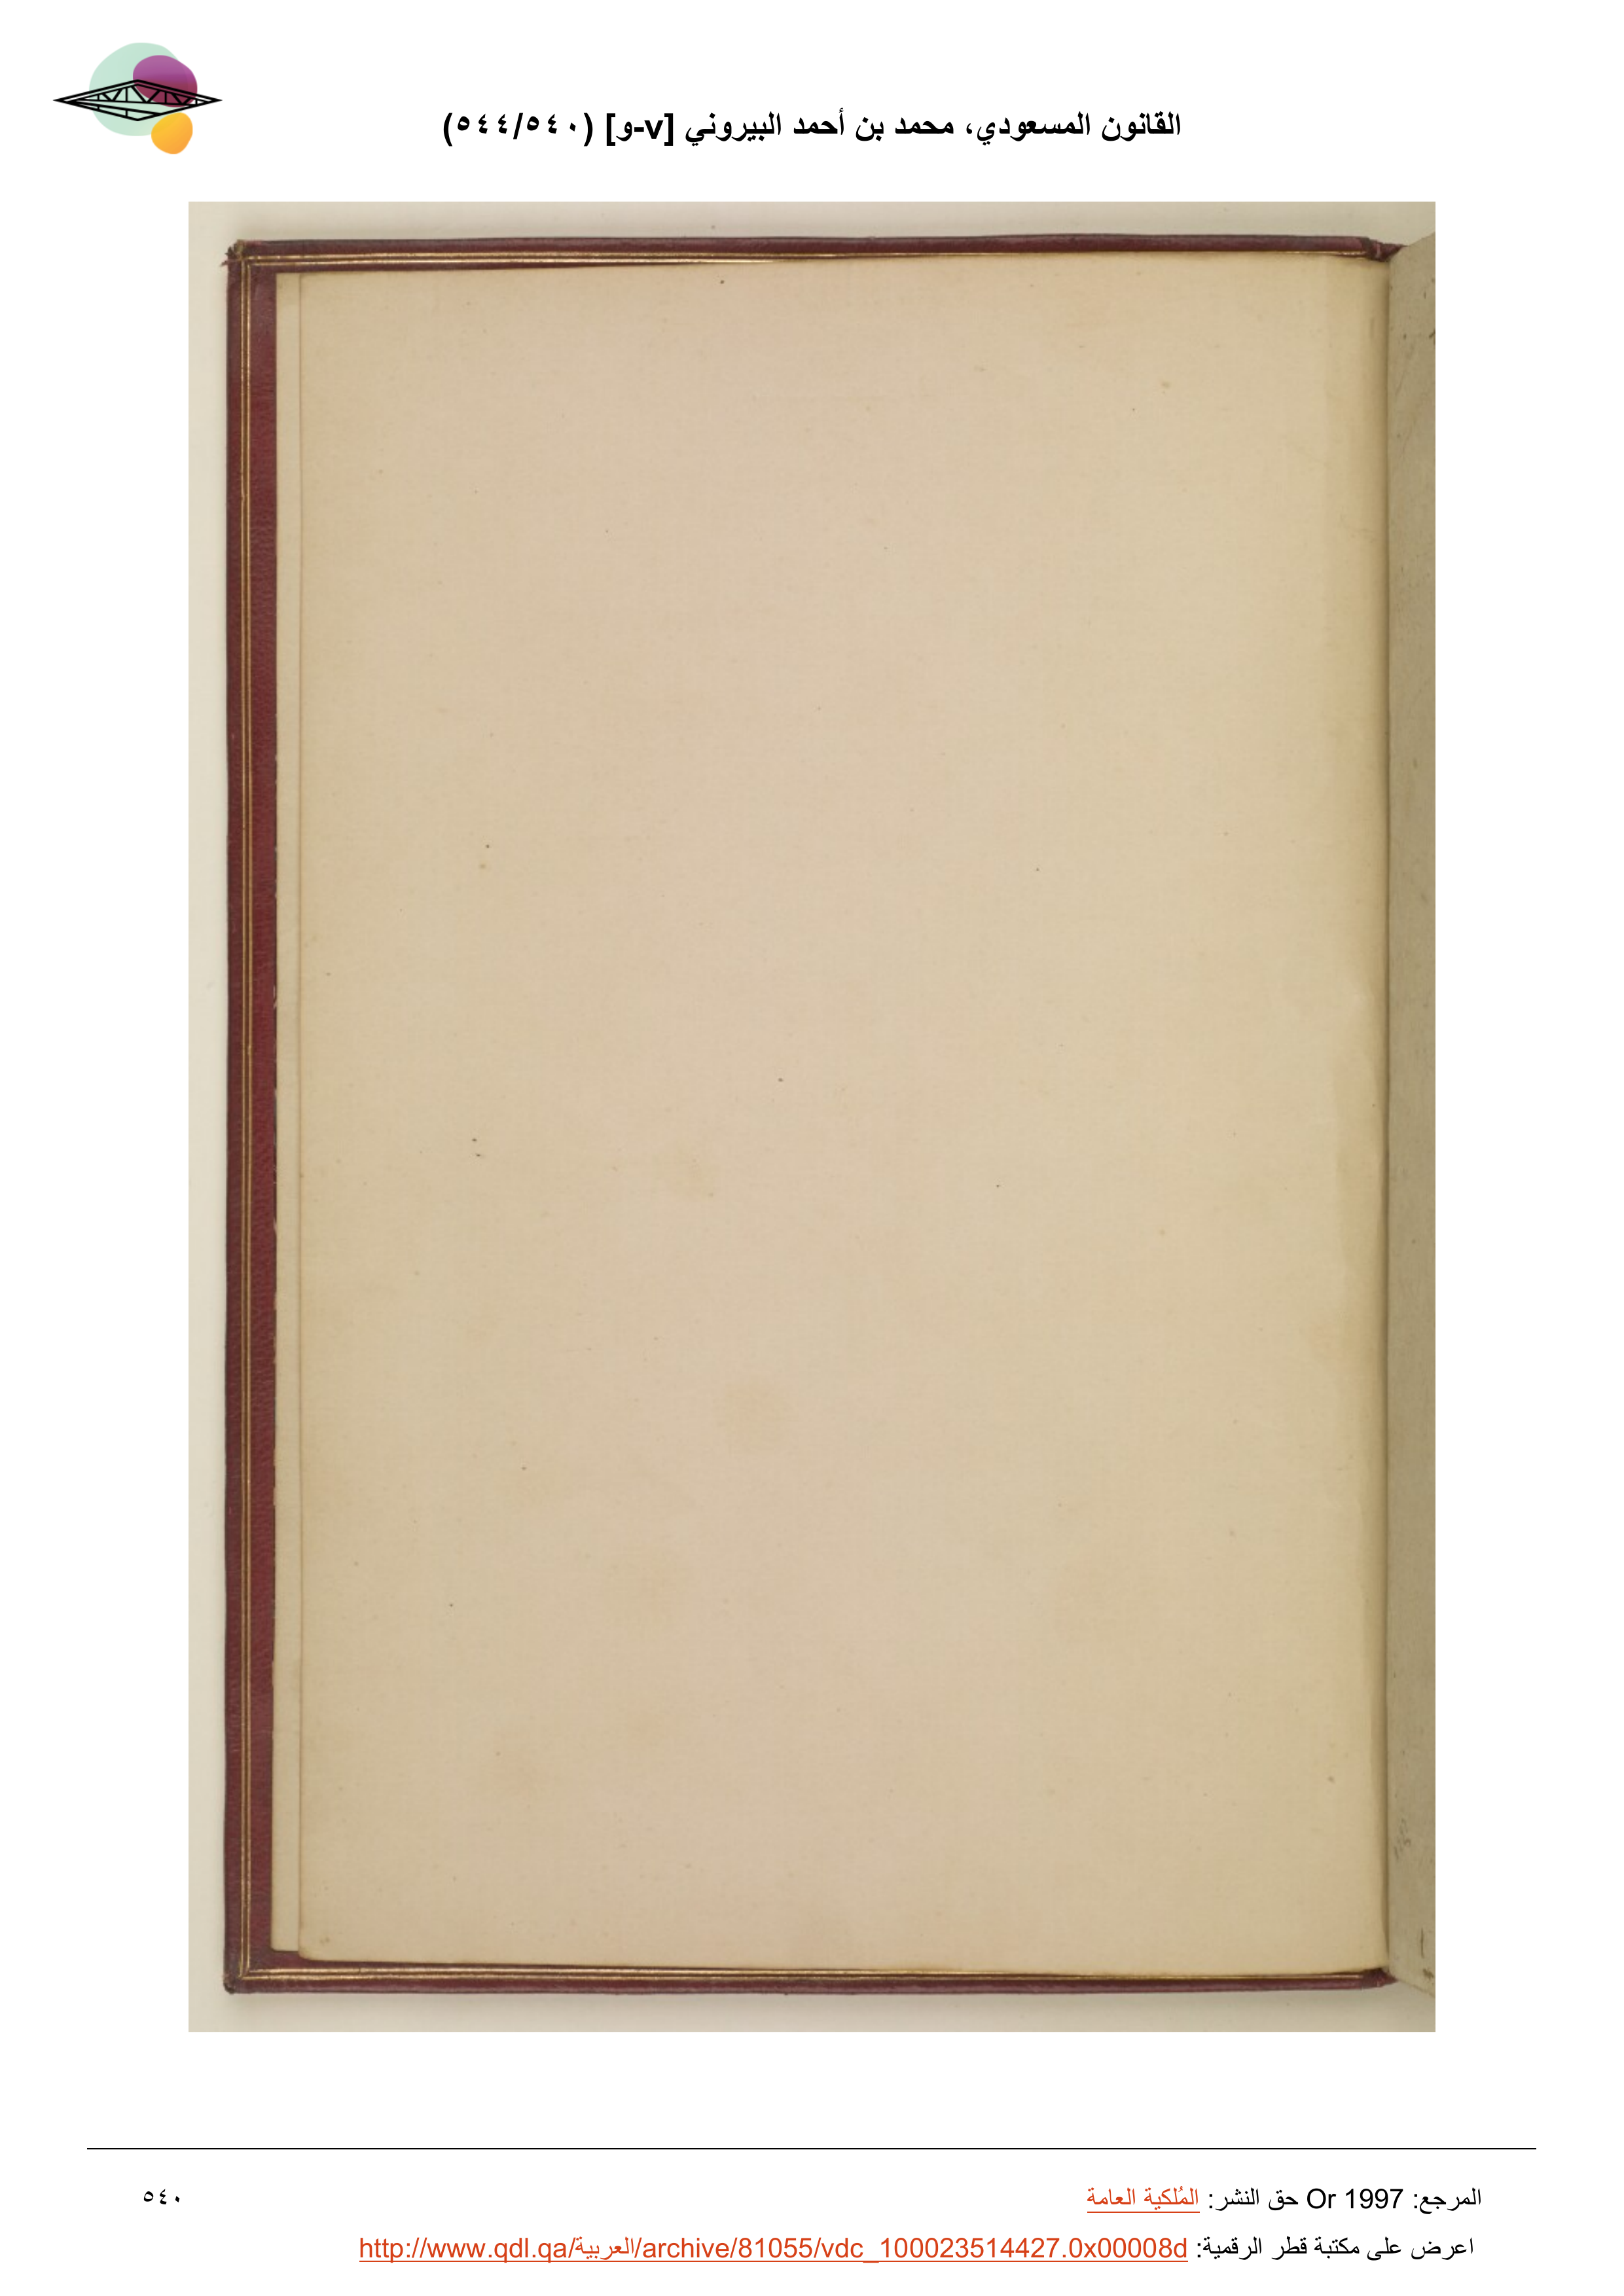 القانون المسعودي، محمد بن أحمد البيروني [v-و] (٥٤٠/٥٤٤)
المرجع: Or 1997 حق النشر: المُلكية العامة
٥٤٠
اعرض على مكتبة قطر الرقمية: http://www.qdl.qa/العربية/archive/81055/vdc_100023514427.0x00008d